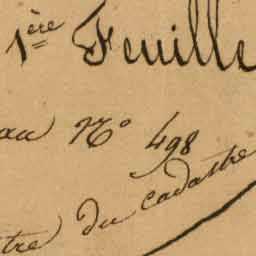 1ère Feuille
au No 498
tre du cadastre